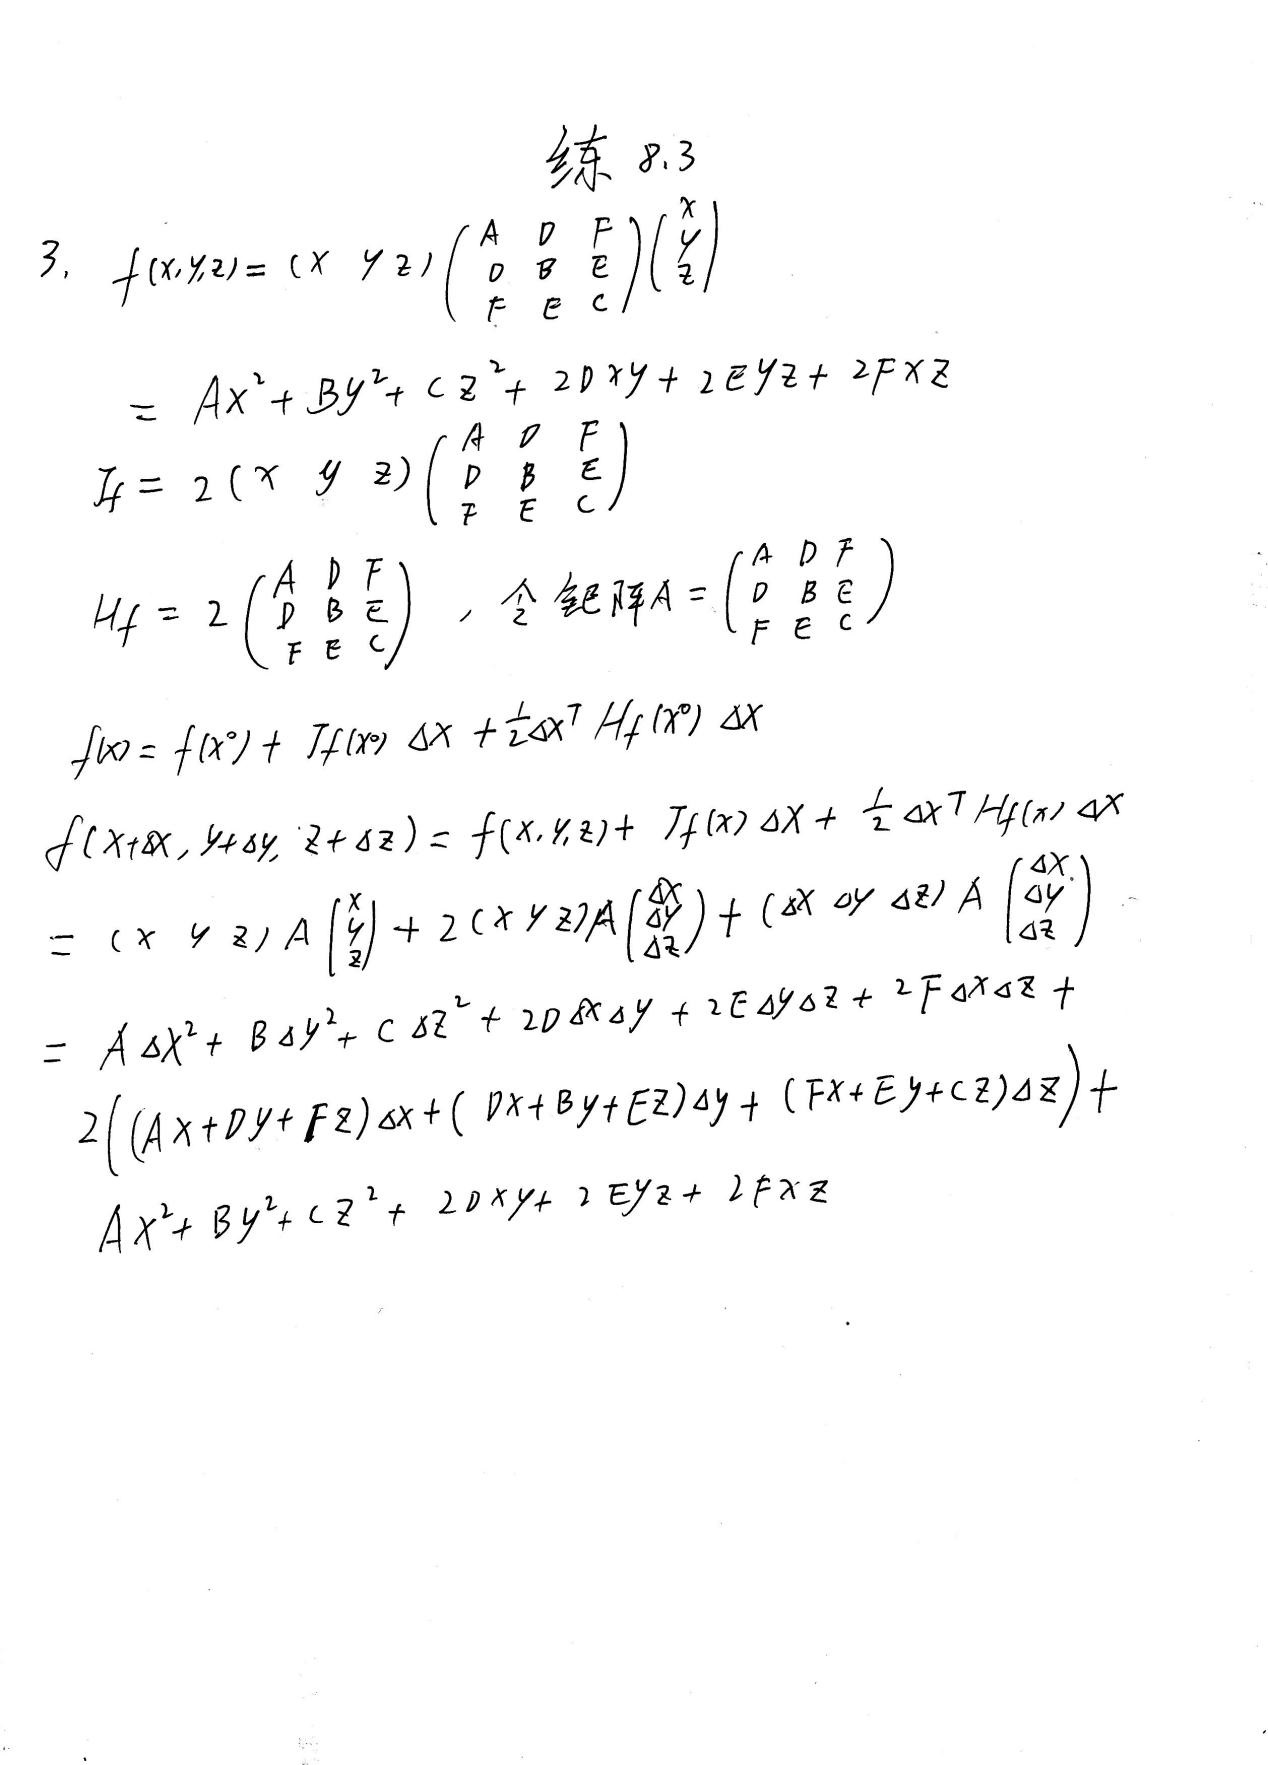 练 8.3
3. f(x,y,z) = (x y z) \begin{pmatrix} A & D & F \\ D & B & E \\ F & E & C \end{pmatrix} \begin{pmatrix} x \\ y \\ z \end{pmatrix}
= Ax² + By² + Cz² + 2Dxy + 2Eyz + 2Fxz
Jf = 2(x y z) \begin{pmatrix} A & D & F \\ D & B & E \\ F & E & C \end{pmatrix}
Hf = 2 \begin{pmatrix} A & D & F \\ D & B & E \\ F & E & C \end{pmatrix} , 令矩阵A = \begin{pmatrix} A & D & F \\ D & B & E \\ F & E & C \end{pmatrix}
f(x) = f(x⁰) + Jf(x⁰) Δx + ½Δxᵀ Hf(x⁰) Δx
f(x+Δx, y+Δy, z+Δz) = f(x,y,z) + Jf(x) Δx + ½ Δxᵀ Hf(x) Δx
= (x y z) A \begin{pmatrix} x \\ y \\ z \end{pmatrix} + 2(x y z)A \begin{pmatrix} Δx \\ Δy \\ Δz \end{pmatrix} + (Δx Δy Δz) A \begin{pmatrix} Δx \\ Δy \\ Δz \end{pmatrix}
= AΔx² + BΔy² + CΔz² + 2DΔxΔy + 2EΔyΔz + 2FΔxΔz +
2((Ax+Dy+Fz)Δx + (Dx+By+Ez)Δy + (Fx+Ey+Cz)Δz) +
Ax² + By² + Cz² + 2Dxy + 2Eyz + 2Fxz